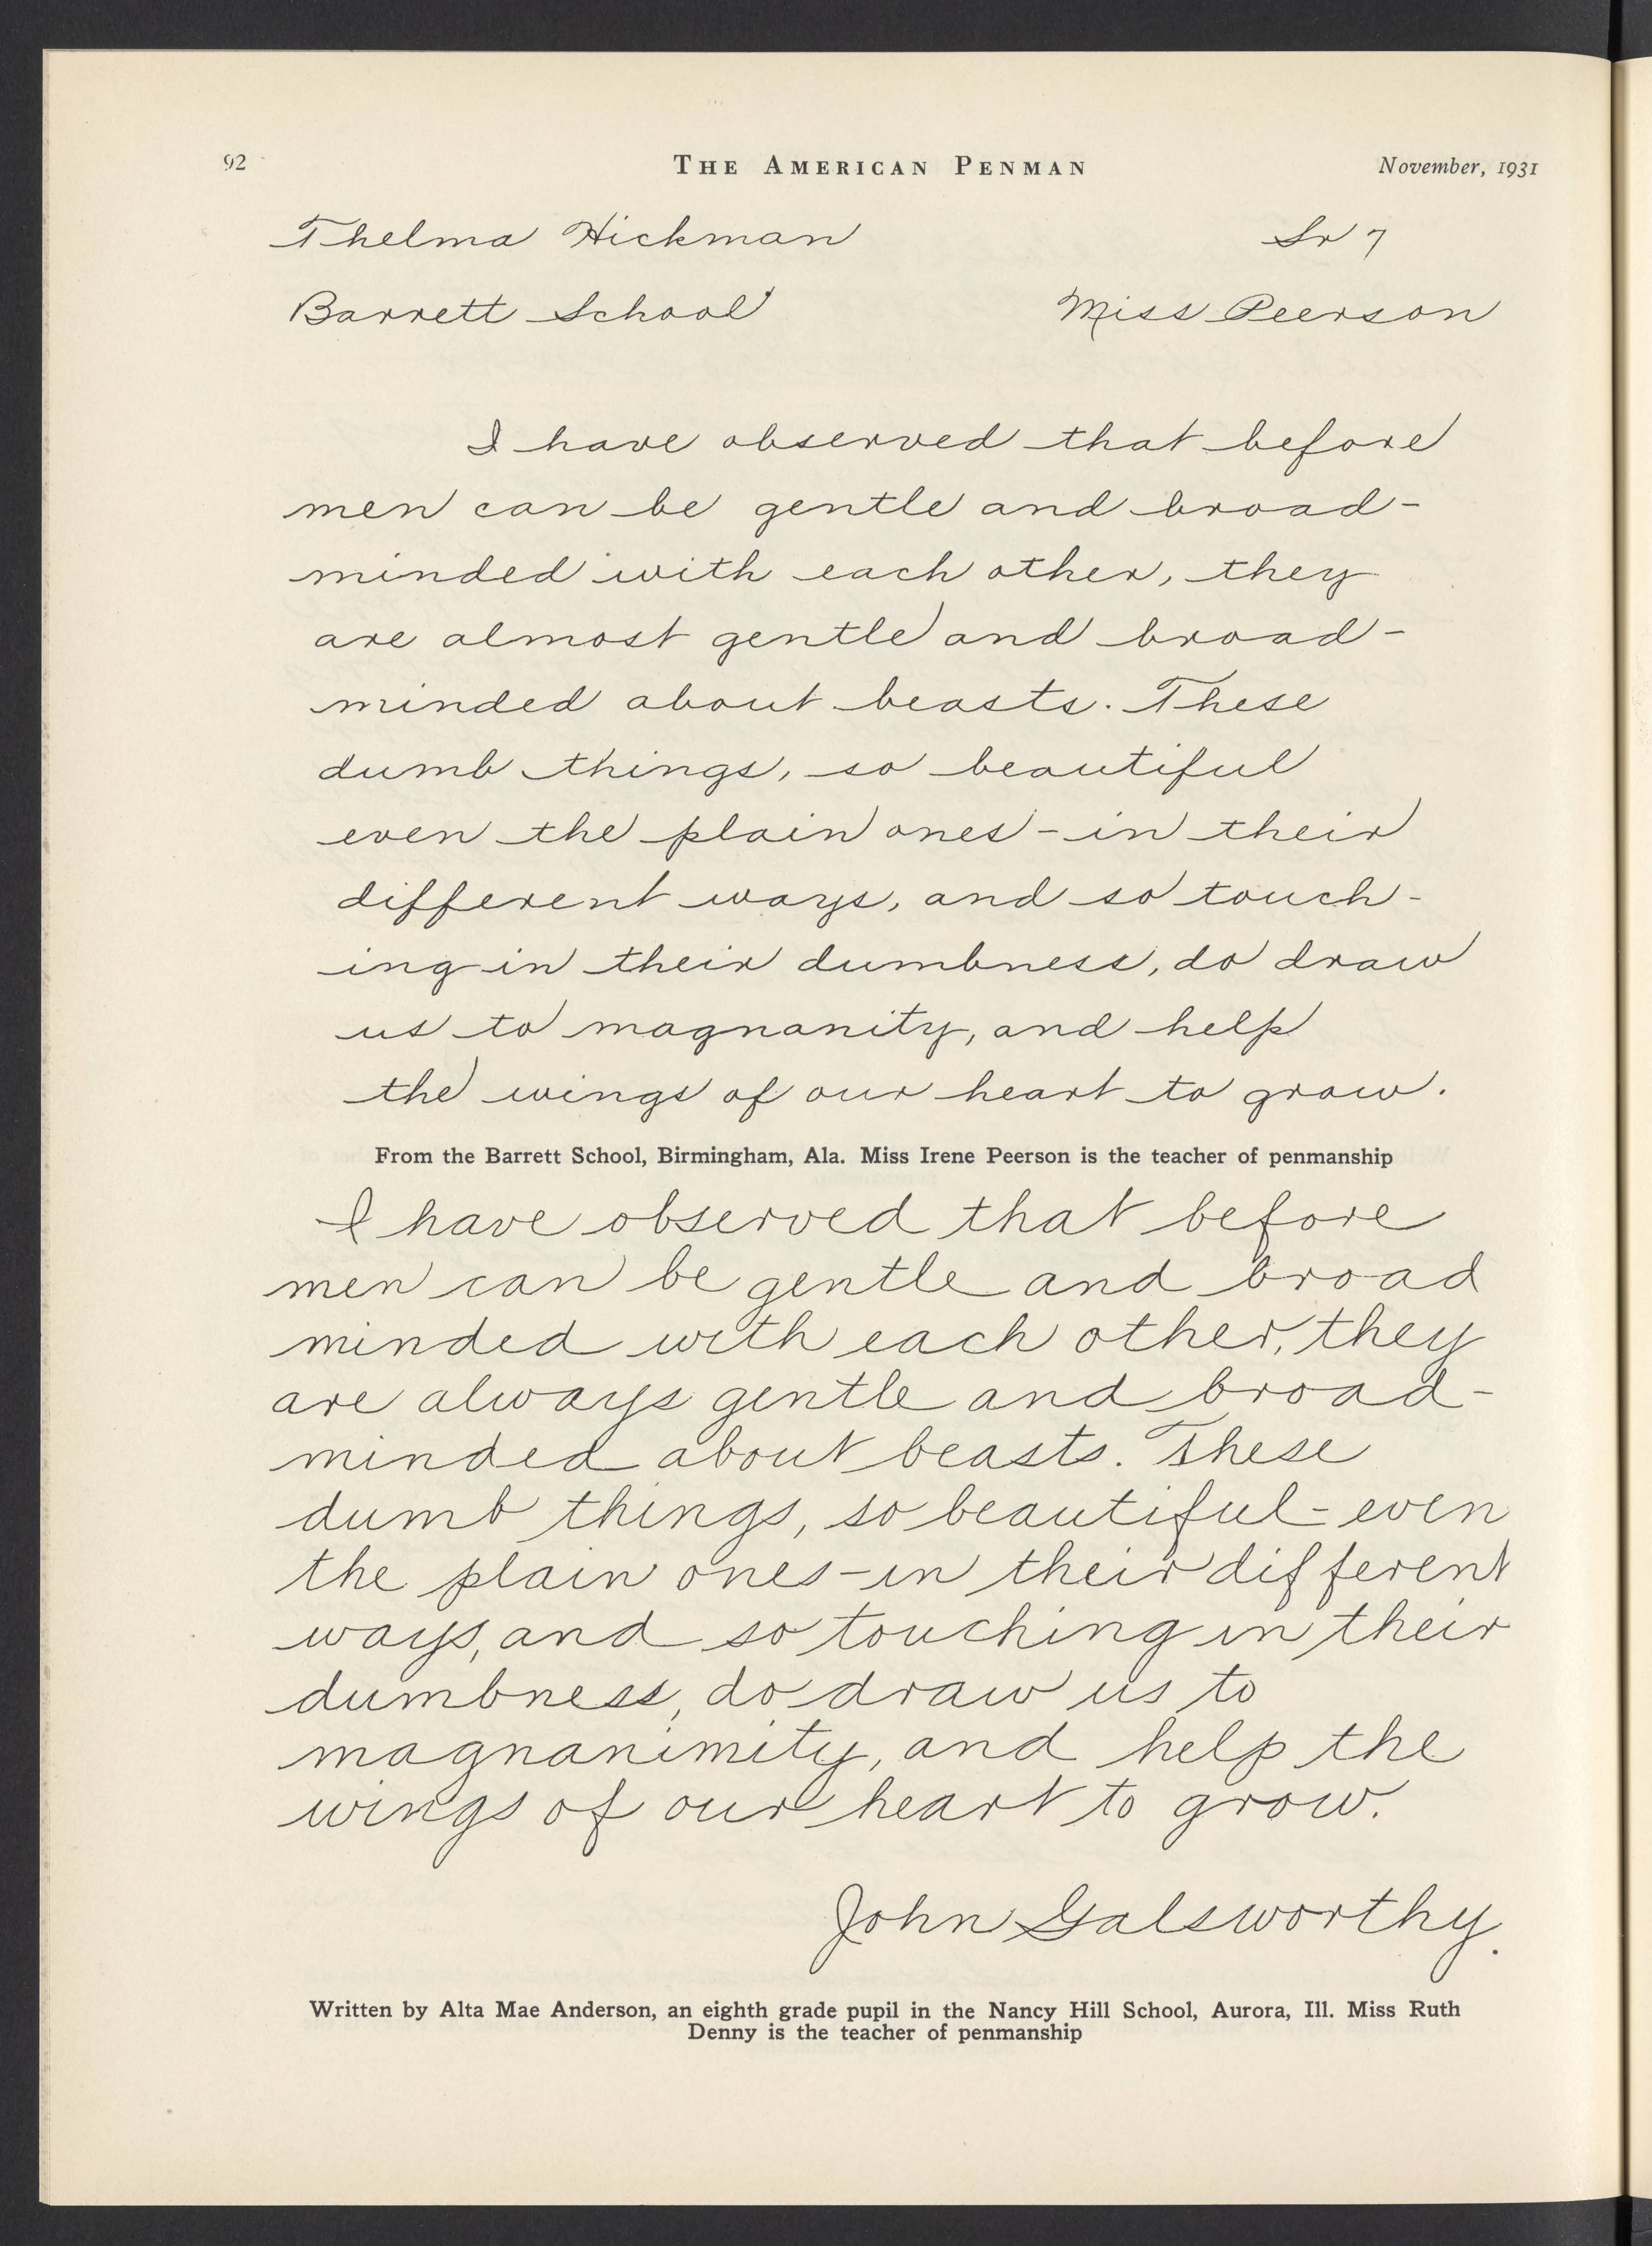 92 THE AMERICAN PENMAN November, 1931
Thelma Hickman Gr 7
Barrett School Miss Peerson
I have observed that before
men can be gentle and broad-
minded with each other, they
are almost gentle and broad-
minded about beasts. These
dumb things, so beautiful
even the plain ones - in their
different ways, and so touch-
ing in their dumbness, do draw
us to magnanity, and help
the wings of our heart to grow.
From the Barrett School, Birmingham, Ala. Miss Irene Peerson is the teacher of penmanship
I have observed that before
men can be gentle and broad
minded with each other, they
are always gentle and broad-
minded about beasts. These
dumb things, so beautiful - even
the plain ones - in their different
ways, and so touching in their
dumbness, do draw us to
magnanimity, and help the
wings of our heart to grow.
John Galsworthy.
Written by Alta Mae Anderson, an eighth grade pupil in the Nancy Hill School, Aurora, Ill. Miss Ruth
Denny is the teacher of penmanship